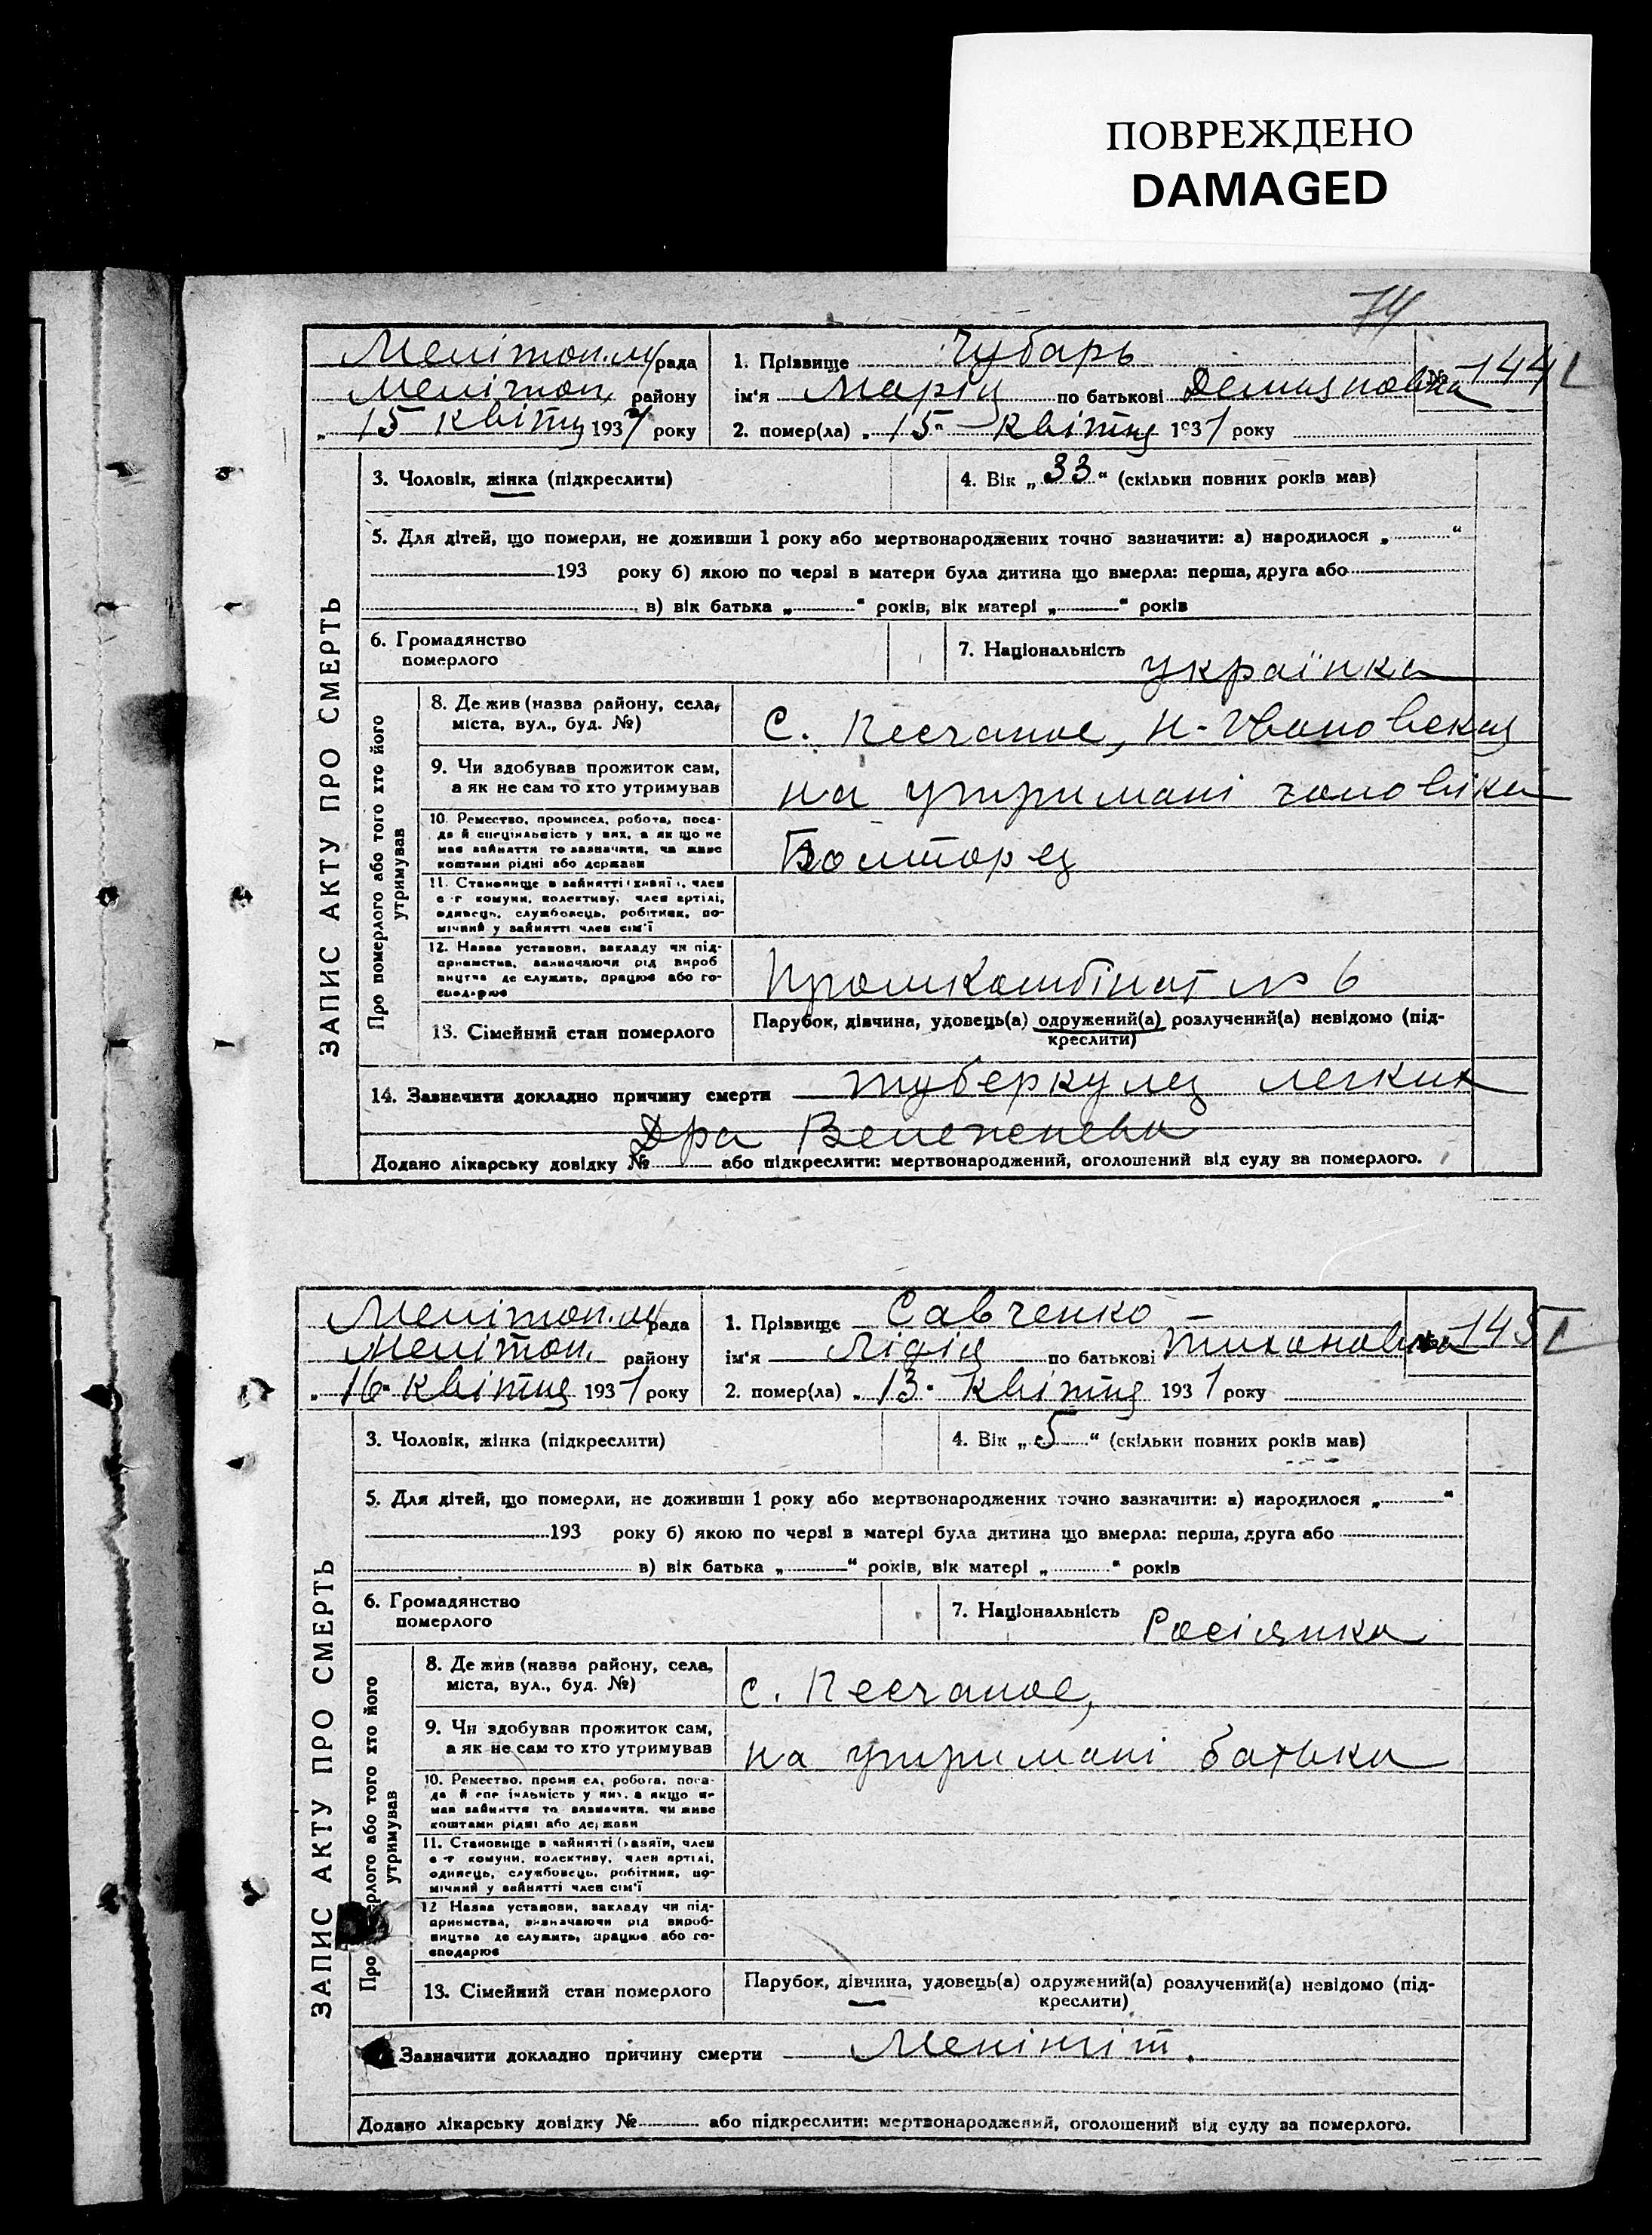 ПОВРЕЖДЕНО
DAMAGED
74
Мелітоп. м/рада 1. Прізвище Чубарь № 144
Мелітоп. району ім'я Марія по батькові Демяновна
„ 15 Квітня 1937 року 2. помер(ла) „ 15 " Квітня 1937 року
ЗАПИС АКТУ ПРО СМЕРТЬ
3. Чоловік, жінка (підкреслити) 4. Вік „ 33 “ (скільки повних років мав)
5. Для дітей, що померли, не доживши 1 року або мертвонароджених точно зазначити: а) народилося „ “
193 року б) якою по черзі в матери була дитина що вмерла: перша, друга або
в) вік батька „ “ років, вік матері „ “ років
6. Громадянство
померлого
7. Національність українка
Про померлого або того хто його
утримував
8. Де жив (назва району, села,
міста, вул., буд. №)
С. Песчаное, Н-Ивановская
9. Чи здобував прожиток сам,
а як не сам то хто утримував
на утримані чоловіка
10. Ремество, промисел, робота, поса-
да й спеціяльність у них, а як що не
мав зайняття то зазначити, чи живе
коштами рідні або держави
11. Становище в зайнятті (хазяї), член
с-г комуни, колективу, член артілі,
одинець, службовець, робітник, по-
мічний у зайнятті член сім'ї
12. Назва установи, закладу чи під-
приємства, зазначаючи рід вироб
ництва де служить, працює або го-
сподарює
Промкомбінат № 6
13. Сімейний стан померлого
Парубок, дівчина, удовець(а) одружений(а) розлучений(а) невідомо (під-
креслити)
14. Зазначити докладно причину смерти туберкулез легких
Дра
Додано лікарську довідку № або підкреслити: мертвонароджений, оголошений від суду за померлого.
Мелітоп. м/рада 1. Прізвище Савченко № 145
Мелітоп. району ім'я Лідія по батькові Тихоновна
„ 16 " Квітня 1937 року 2. помер(ла) „ 13 " Квітня 1937 року
ЗАПИС АКТУ ПРО СМЕРТЬ
3. Чоловік, жінка (підкреслити) 4. Вік „ 5 “ (скільки повних років мав)
5. Для дітей, що померли, не доживши 1 року або мертвонароджених точно зазначити: а) народилося „ “
193 року б) якою по черзі в матері була дитина що вмерла: перша, друга або
в) вік батька „ “ років, вік матері „ “ років
6. Громадянство
померлого
7. Національність Росіянка
Про рлого або того хто його
утримував
8. Де жив (назва району, села,
міста, вул., буд. №)
с. Песчаное,
9. Чи здобував прожиток сам,
а як не сам то хто утримував
на утримані батька
10. Ремество, промисел, робота, поса-
да й спеціяльність у них, а якщо не
мав зайняття то зазначити, чи живе
коштами рідні або держави
11. Становище в зайнятті (хазяїн, член
с-г комуни, колективу, член артілі,
одинець, службовець, робітник, по-
мічний у зайнятті член сім'ї
12 Назва установи, закладу чи під-
приємства, визначаючи рід вироб-
ництва де служить, працює або го-
сподарює
13. Сімейний стан померлого
Парубок, дівчина, удовець(а) одружений(а) розлучений(а) невідомо (під-
креслити)
Зазначити докладно причину смерти Менінгіт.
Додано лікарську довідку № або підкреслити: мертвонароджений, оголошений від суду за померлого.